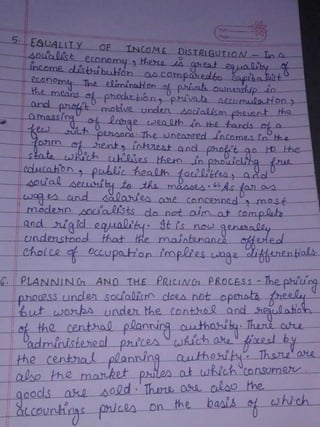 5. EQUALITY OF INCOME DISTRIBUTION - In a
socialist economy, there is great equality of
income distribution as compared to capitalist
economy. The elimination of private ownership in
the means of production, private accumulation,
and profit motive under socialism prevent the
amassing of large wealth in the hands of a
few rich persons. The unearned incomes in the
form of rent, interest and profit go to the
state which utilises them in providing free
education, public health facilities, and
social security to the masses. "As far as
wages and salaries are concerned, most
modern socialists do not aim at complete
and rigid equality. It is now generally
understood that the maintenance offered
choice of occupation implies wage differentials.
6. PLANNING AND THE PRICING PROCESS - The pricing
process under socialism does not operate freely
but works under the control and regulation
of the central planning authority. There are
administered prices which are fixed by
the central planning authority. There are
also the market prices at which consumer
goods are sold. There are also the
accountings prices on the basis of which